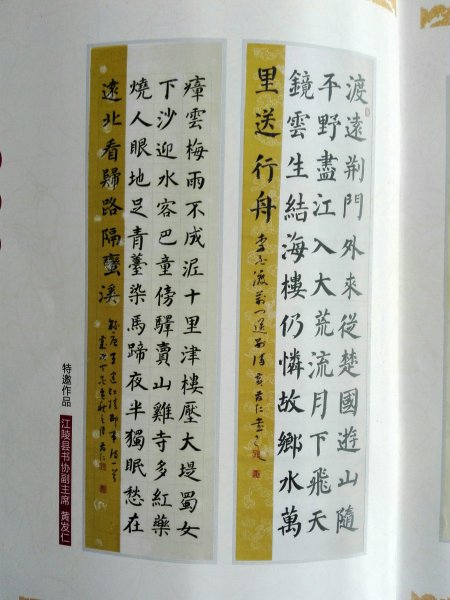 渡遠荆門外來從楚國遊山隨
平野盡江入大荒流月下飛天
鏡雲生結海樓仍憐故鄉水萬
里送行舟
李白渡荆門送别詩 黄發仁書之
瘴雲梅雨不成泥十里津樓壓大堤蜀女
下沙迎水客巴童傍驛賣山雞寺多紅藥
燒人眼地足青薹染馬蹄夜半獨眠愁在
遠北看歸路隔蠻溪
録唐王建江陵即事詩一首
特邀作品
江陵县书协副主席 黄发仁